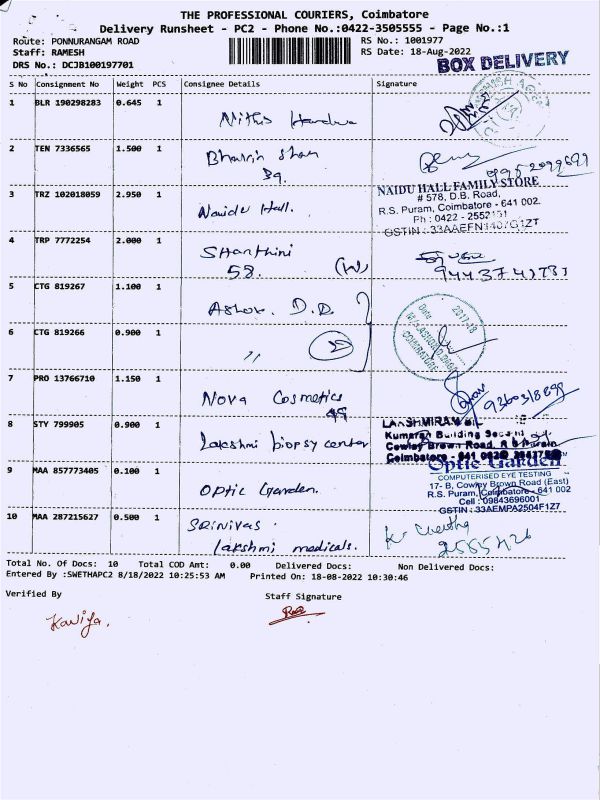 THE PROFESSIONAL COURIERS, Coimbatore
Delivery Runsheet - PC2 - Phone No.:0422-3505555 - Page No.:1
Route: PONNURANGAM ROAD
RS No.: 1001977
Staff: RAMESH
RS Date: 18-Aug-2022
DRS No.: DCJB100197701
BOX DELIVERY
S No Consignment No Weight PCS Consignee Details Signature
1 BLR 190298283 0.645 1
2 TEN 7336565 1.500 1
39.
3 TRZ 102018059 2.950 1 Naidu Hall.
NAIDU HALL FAMILY STORE
# 578, D.B. Road,
R.S. Puram, Coimbatore - 641 002.
Ph : 0422 - 2552151
GSTIN :
4 TRP 7772254 2.000 1 Shanthini
58. (W)
5 CTG 819267 1.100 1 Ashok. D.D
2017-18
COIMBATORE
6 CTG 819266 0.900 1 ,,
7 PRO 13766710 1.150 1 Nova Cosmetics
49
8 STY 799905 0.900 1 Lakshmi biopsy center
Kumaran Building
Cowley Brown Road, R S Puram
Coimbatore - 641 002
9 MAA 857773405 0.100 1 Optic Garden.
Optic Garden
COMPUTERISED EYE TESTING
17- B, Cowley Brown Road (East)
R.S. Puram, Coimbatore - 641 002
Cell : 09843696001
GSTIN : 33AEMPA2504F1Z7
10 MAA 287215627 0.500 1 Srinivas
lakshmi medicals.
2555426
Total No. Of Docs: 10 Total COD Amt: 0.00 Delivered Docs: Non Delivered Docs:
Entered By :SWETHAPC2 8/18/2022 10:25:53 AM Printed On: 18-08-2022 10:30:46
Verified By Staff Signature